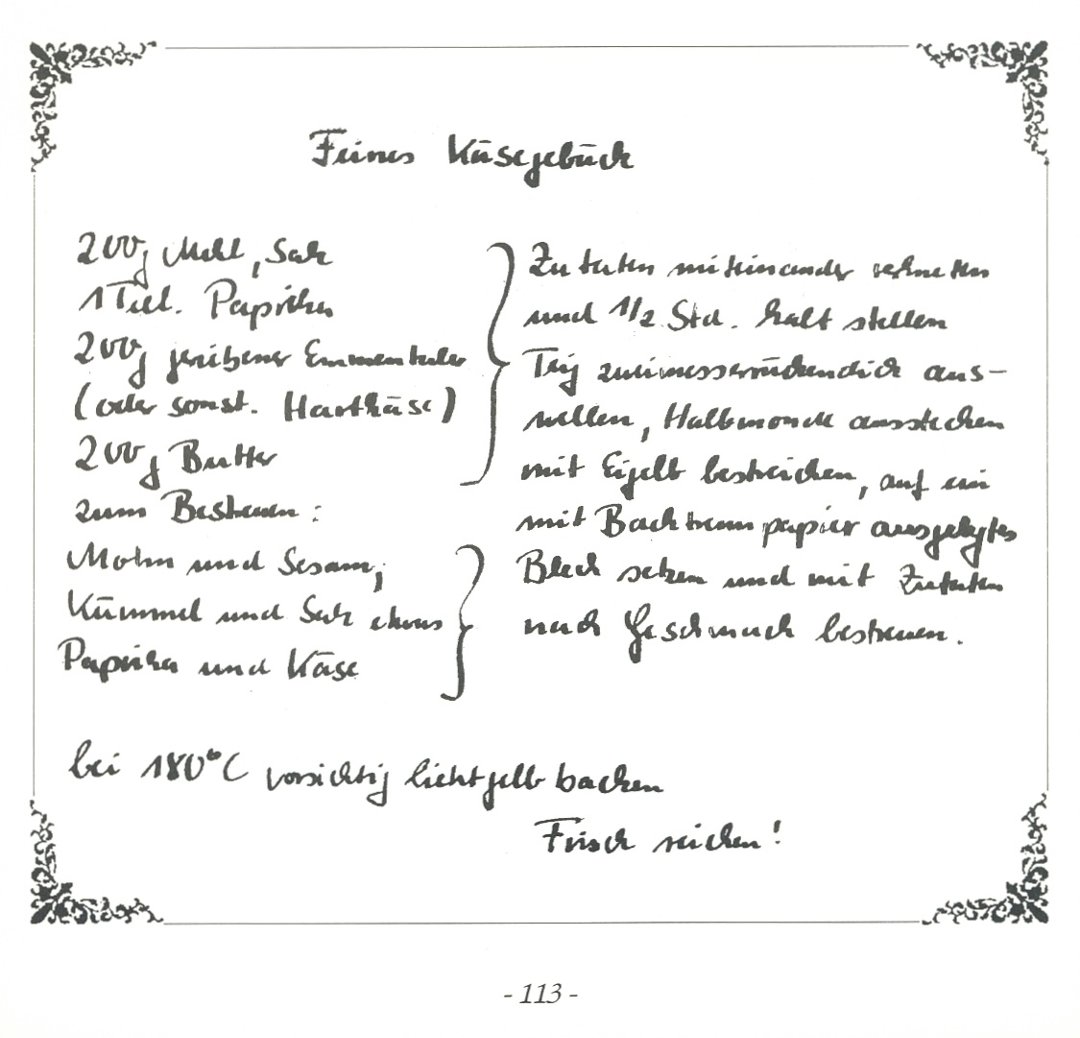 Feines Käsegebäck
200g Mehl, Salz
1 Teel. Paprika
200g geriebener Emmentaler
(oder sonst. Hartkäse)
200g Butter
zum Bestreuen:
Mohn und Sesam,
Kümmel und Salz etwas
Paprika und Käse
Zutaten miteinander verkneten
und 1/2 Std. kalt stellen
Teig zweimesserrückendick aus-
wellen, Halbmonde ausstechen
mit Eigelb bestreichen, auf ein
mit Backtrennpapier ausgelegtes
Blech setzen und mit Zutaten
nach Geschmack bestreuen.
bei 180°C vorsichtig lichtgelb backen
Frisch reichen!
- 113 -